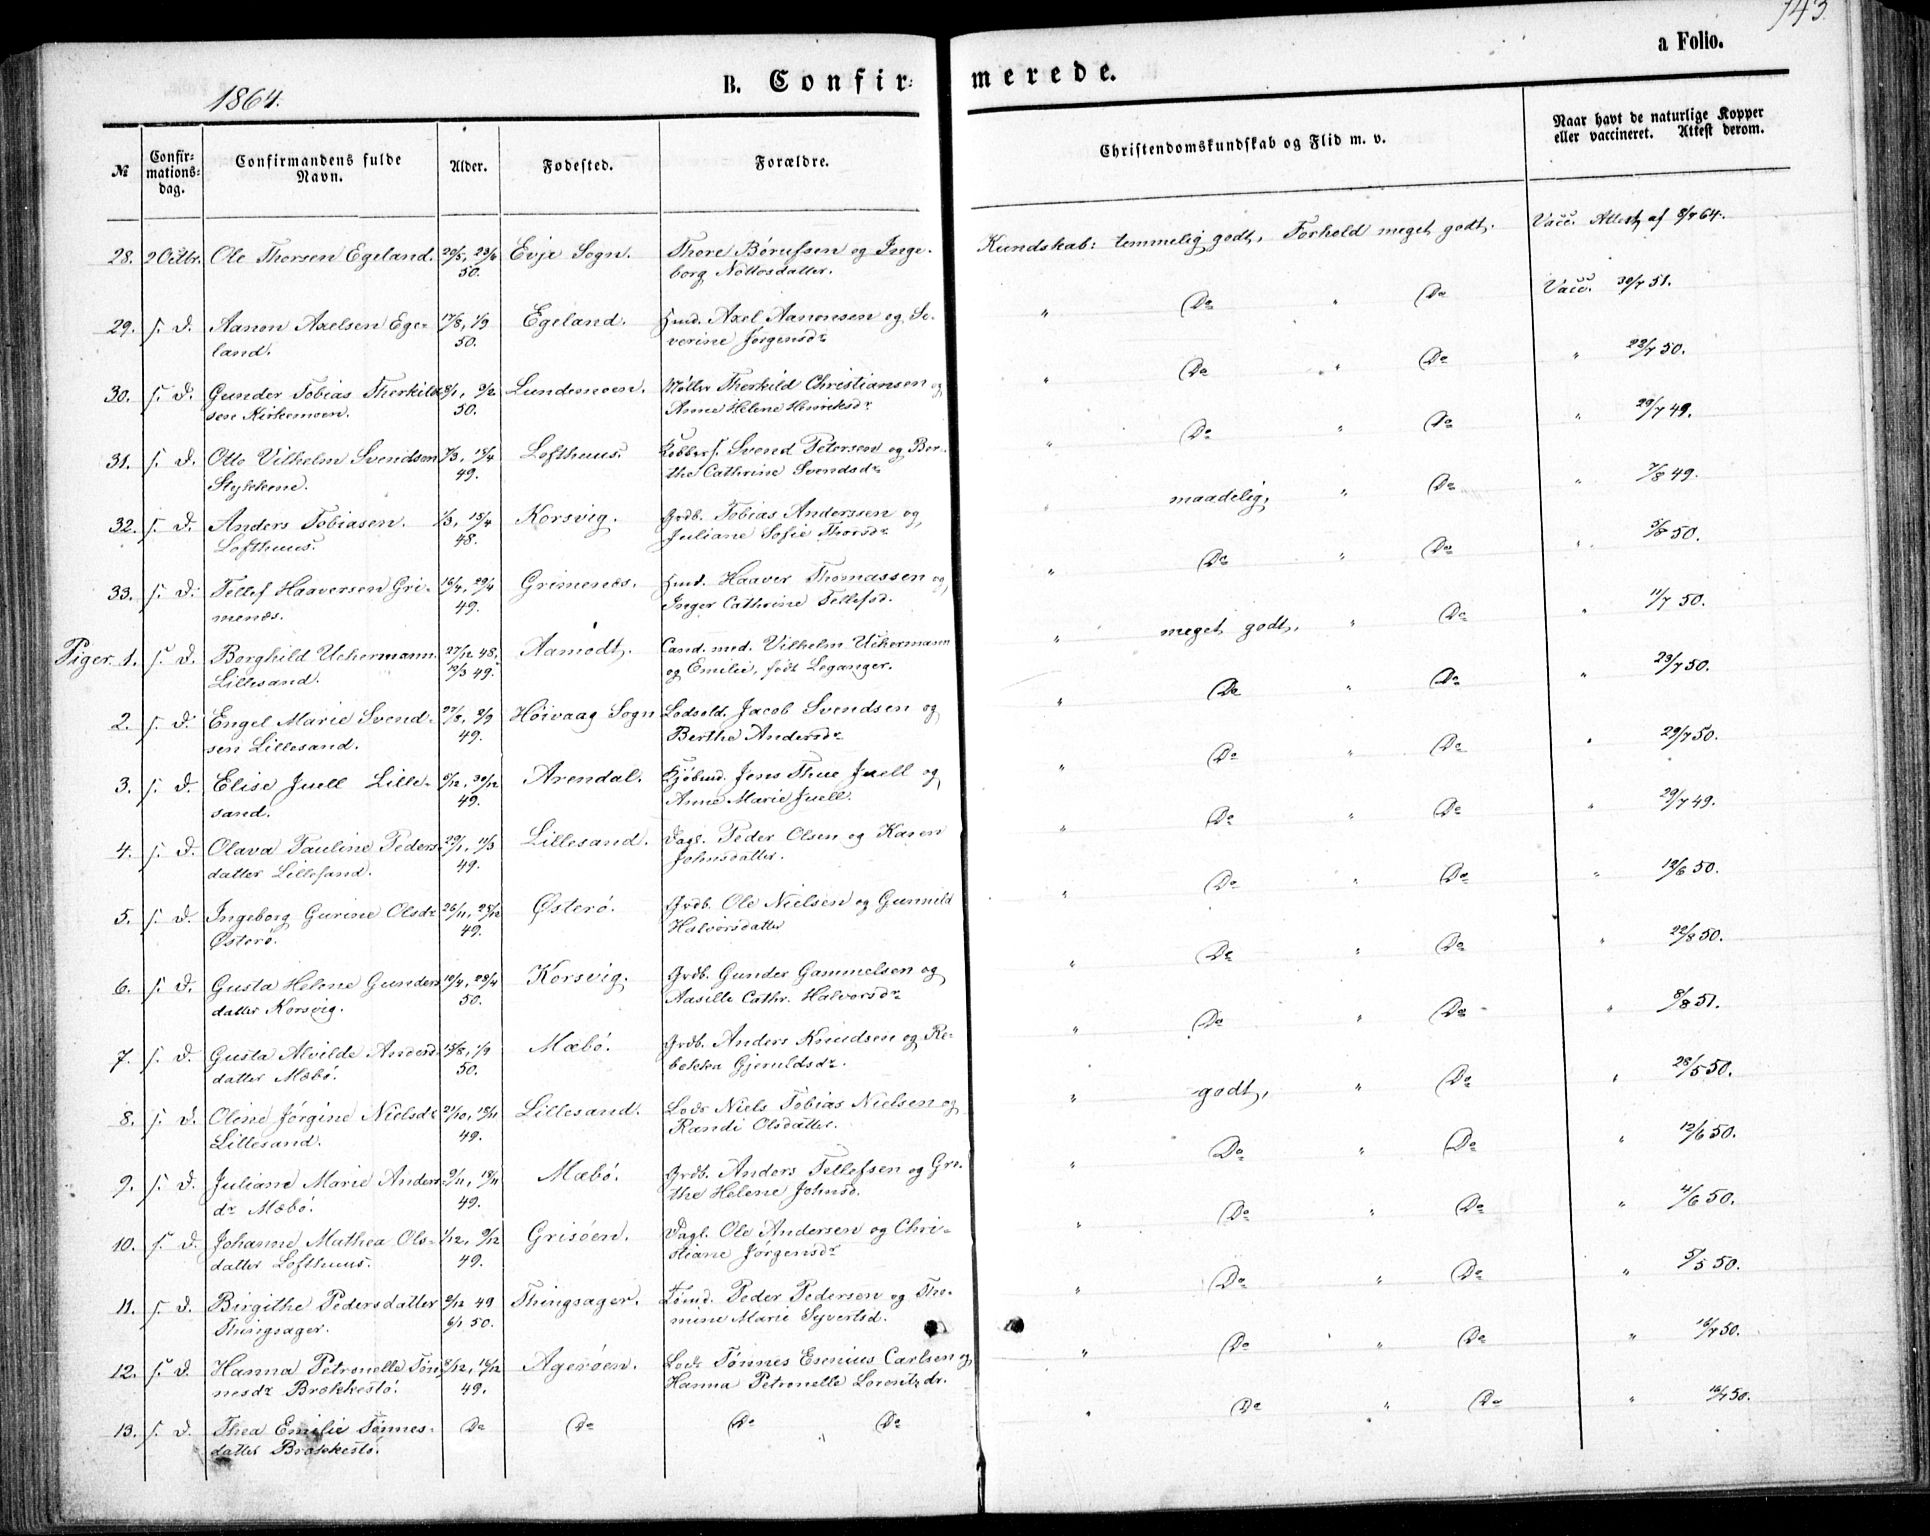 143.
a Folio.
1864.
B. Confir- merede.
No
Confir-
mations-
dag.
Confirmandens fulde
Navn.
Alder.
Fødested.
Forældre.
Christendomskundskab og Flid m. v.
Naar havt de naturlige Kopper
eller vaccineret. Attest derom.
28. 2 Octbr. Ole Thorsen Egeland. 20/5, 23/6 Evje Sogn. Thore Børufsen og Inge- Kundskab: temmelig godt, Forhold meget godt. Vacc. Attest af 8/7 64.
50. borg Nottosdatter.
29. s. D. Aanon Axelsen Ege- 17/8, 1/9 Egeland. Hmd. Axel Aanonsen og Se- " Do " Do Vacc. 30/7 51.
land. 50. verine Jørgensdr
30. s. D. Gunder Tobias Therkild- 8/1, 9/2 Lundemoen. Møller Therkild Christiansen og " Do " Do " 22/7 50.
sen Kirkemoen. 50. Anne Helene Henriksdr
31. s. D. Otto Vilhelm Svendsen 7/3, 15/4 Lofthuus. Kobbers. Svend Petersen og Ber- " Do " Do " 29/7 49.
Stykkene. 49. the Cathrine Svendsdr
32. s. D. Anders Tobiasen 1/3, 15/4 Korsvig. Grdb. Tobias Anderssen og " maadelig, " Do " 7/8 49.
Lofthuus. 48. Juliane Sofie Thorsdr
33. s. D. Tellef Haaversen Gri- 16/4, 29/4 Grimenes. Hmd. Haaver Thomassen og " Do " Do " 5/8 50.
menæs. 49. Inger Cathrine Tellefsd.
Piger 1. s. D. Borghild Uchermann 27/12 48, Aamodt. Cand. med. Vilhelm Uckermann " meget godt, " Do " 11/7 50.
Lillesand. 19/3 49. og Emilie, født Leganger.
2. s. D. Engel Marie Svend- 27/8, 2/9 Høivaag Sogn Lodsold. Jacob Svendsen og " Do " Do " 23/7 50.
sen Lillesand. 49. Berthe Andersdr
3. s. D. Elise Juell Lille- 9/12, 30/12 Arendal. Kjøbmd. Jens Thue Juell og " Do " Do " 29/7 50.
sand. 49. Anne Marie Juell.
4. s. D. Olava Pauline Peders- 29/1, 11/3 Lillesand. Dagl. Peder Olsen og Karen " Do " Do " 29/7 49.
datter Lillesand. 49. Johnsdatter.
5. s. D. Ingeborg Gurine Olsdr 26/11, 25/12 Østerø. Grdb. Ole Nielsen og Gunnild " Do " Do " 12/6 50.
Østerø. 49. Halvorsdatter
6. s. D. Gusta Helene Gunders- 12/4, 28/4 Korsvig. Grdb. Gunder Gammelsen og " Do " Do " 22/8 50.
datter Korsvig. 50. Aasille Cathr. Halvorsdr
7. s. D. Gusta Alvilde Anders- 15/8, 1/9 Mæbø. Grdb. Anders Knudsen og Re- " Do " Do " 8/8 51.
datter Mæbø. 50. bekka Gjeruldsdr.
8. s. D. Oline Jørgine Nielsdr 21/10, 18/11 Lillesand. Lods Niels Tobias Nielsen og " godt, " Do " 28/5 50.
Lillesand. 49. Randi Olsdatter.
9. s. D. Juliane Marie Anders- 9/11, 18/11 Mæbø. Grdb. Anders Tellefsen og Gre- " Do " Do " 12/6 50.
dr Mæbø. 49. the Helene Johnsd.
10. s. D. Johanne Mathea Ols- 1/12, 9/12 Grisøen. Dagl. Ole Andersen og Chri- " Do " Do " 4/6 50.
datter Lofthuus. 49. stiane Jørgensdr
11. s. D. Birgithe Pedersdatter 9/12 49 Thingsager. Tømd. Peder Pedersen og Tho- " Do " Do " 5/5 50.
Thingsager. 6/1 50. mine Marie Syvertsd.
12. s. D. Hanna Petronelle Tøn- 8/12, 16/12 Agerøen. Lods Tønnes Esenius Carlsen og " Do " Do " 16/7 50.
nesdr Brøkkestø. 49. Hanna Petronelle Lorentzdr.
13. s. D. Thea Emilie Tønnes- Do Do Do Do " Do " Do " 16/7 50.
datter Brøkkestø.